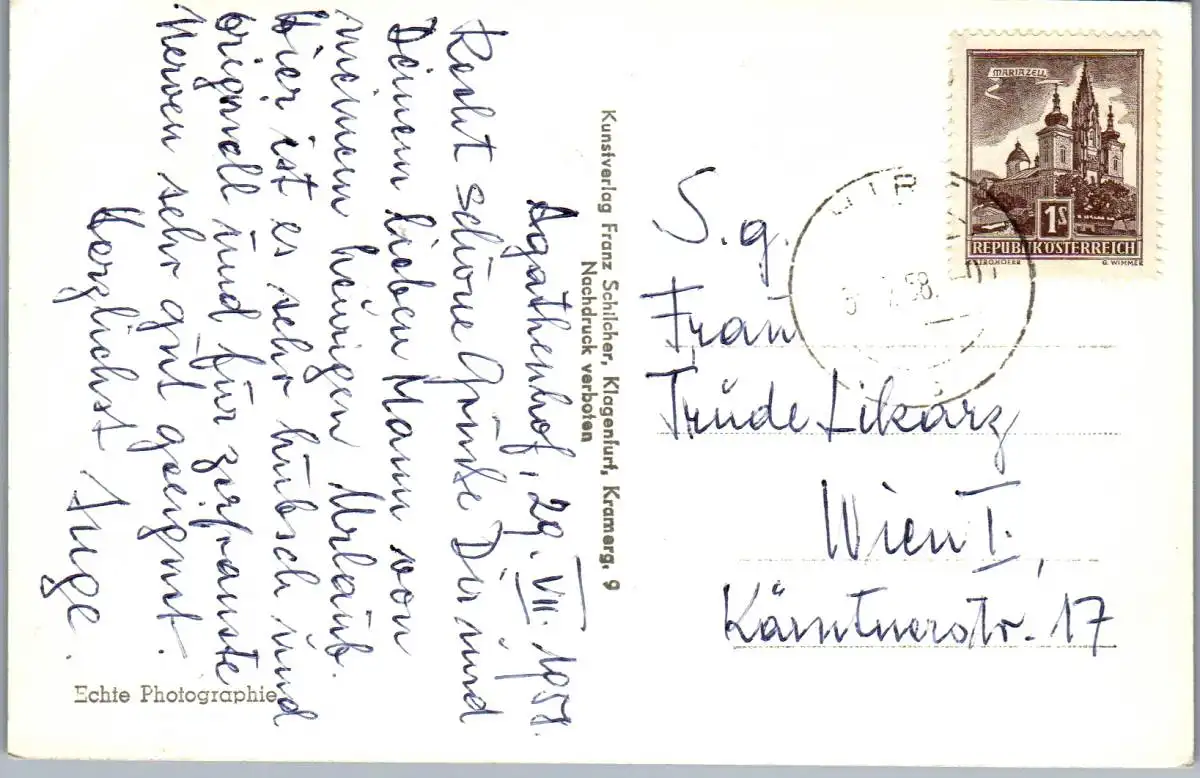 Agathenhof, 29. VII. 1958.
Recht schöne Grüße Dir und
Deinem lieben Mann von
meinem heurigen Urlaub.
Hier ist es sehr hübsch und
originell und für zerfranste
Nerven sehr gut geeignet.
Herzlichst Inge.
Echte Photographie
Kunstverlag Franz Schilcher, Klagenfurt, Kramerg. 9
Nachdruck verboten
MARIAZELL
1S
REPUBLIK ÖSTERREICH
G. WIMMER
58.
S. g.
Frau
Trude Likarz
Wien I.,
Kärntnerstr. 17